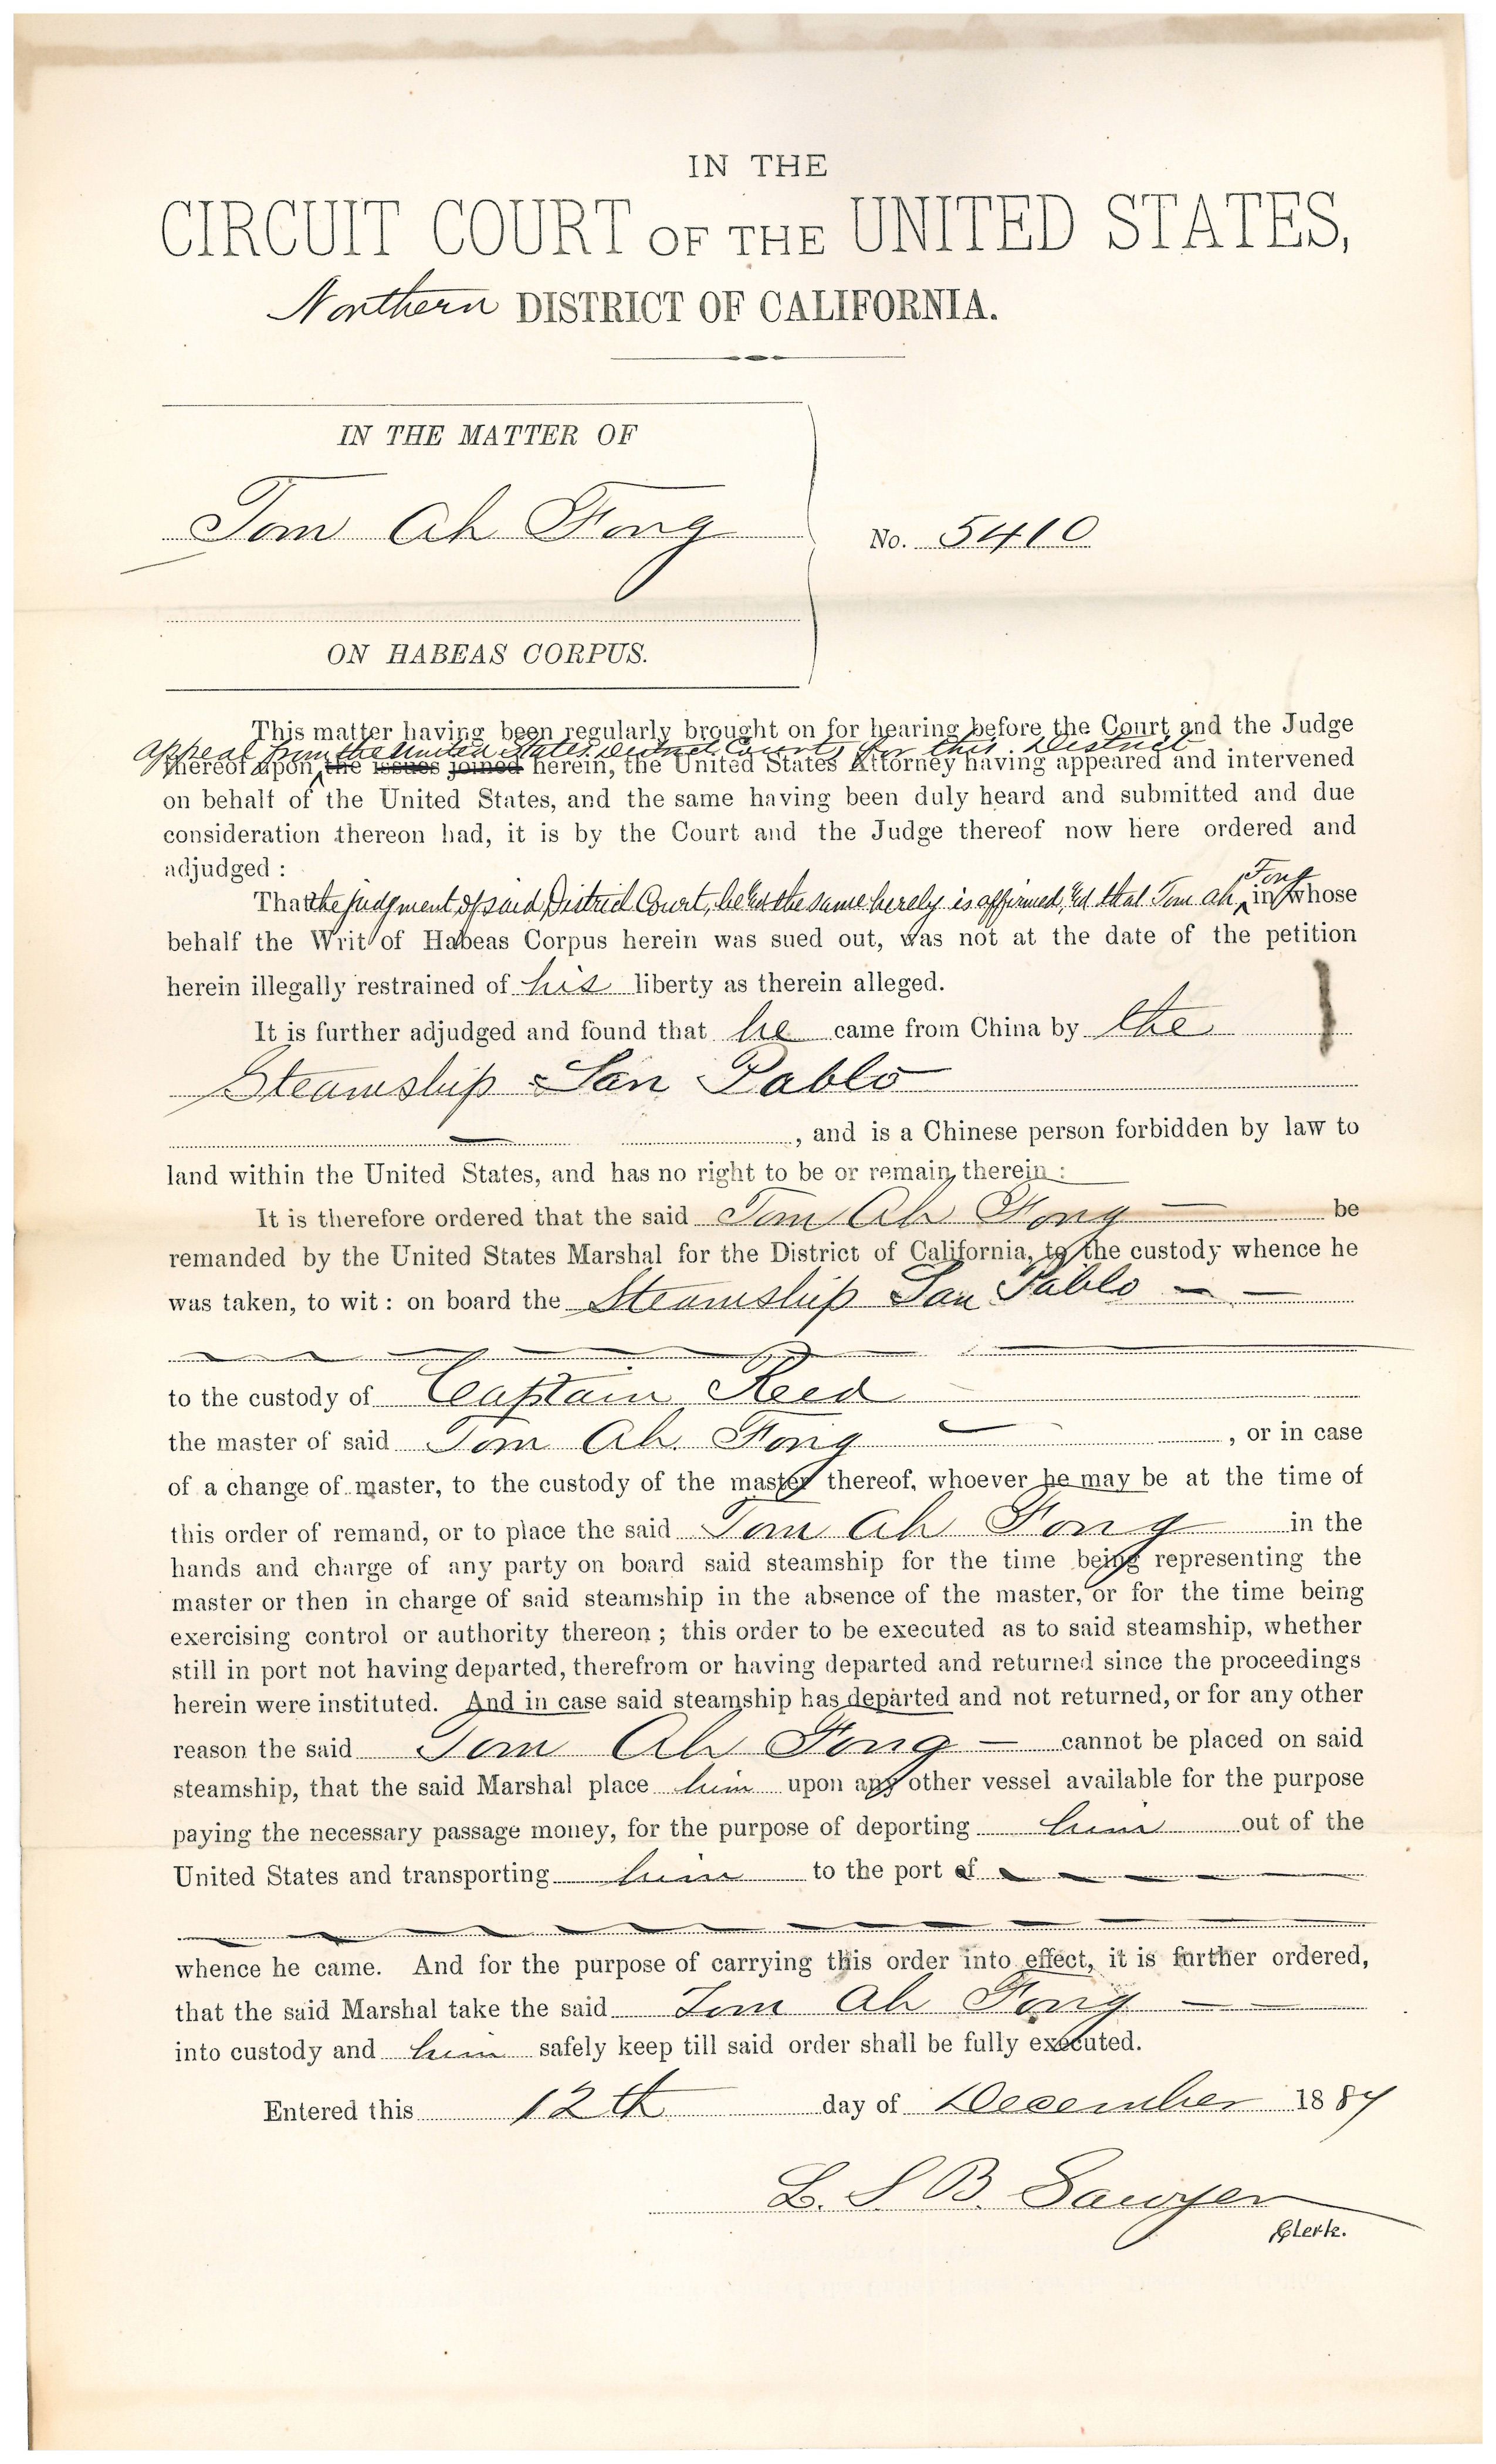 IN THE
CIRCUIT COURT OF THE UNITED STATES,
Northern DISTRICT OF CALIFORNIA.
IN THE MATTER OF
Tom Ah Fong
No. 5410
ON HABEAS CORPUS.
This matter having been regularly brought on for hearing before the Court and the Judge
appeal from the United States District Court, for this District
thereof upon the issues joined herein, the United States Attorney having appeared and intervened
on behalf of the United States, and the same having been duly heard and submitted and due
consideration thereon had, it is by the Court and the Judge thereof now here ordered and
adjudged :
Fong
That the judgment of said District Court, be and the same hereby is affirmed, and that Tom Ah in whose
behalf the Writ of Habeas Corpus herein was sued out, was not at the date of the petition
herein illegally restrained of his liberty as therein alleged.
It is further adjudged and found that he came from China by the
Steamship San Pablo
, and is a Chinese person forbidden by law to
land within the United States, and has no right to be or remain therein :
It is therefore ordered that the said Tom Ah Fong be
remanded by the United States Marshal for the District of California, to the custody whence he
was taken, to wit : on board the Steamship San Pablo
to the custody of Captain Reed
the master of said Tom Ah. Fong , or in case
of a change of master, to the custody of the master thereof, whoever he may be at the time of
this order of remand, or to place the said Tom Ah Fong in the
hands and charge of any party on board said steamship for the time being representing the
master or then in charge of said steamship in the absence of the master, or for the time being
exercising control or authority thereon ; this order to be executed as to said steamship, whether
still in port not having departed, therefrom or having departed and returned since the proceedings
herein were instituted. And in case said steamship has departed and not returned, or for any other
reason the said Tom Ah Fong cannot be placed on said
steamship, that the said Marshal place him upon any other vessel available for the purpose
paying the necessary passage money, for the purpose of deporting him out of the
United States and transporting him to the port of
whence he came. And for the purpose of carrying this order into effect, it is further ordered,
that the said Marshal take the said Tom Ah Fong
into custody and him safely keep till said order shall be fully executed.
Entered this 12th day of December 1887
L. S B. Sawyer
Clerk.